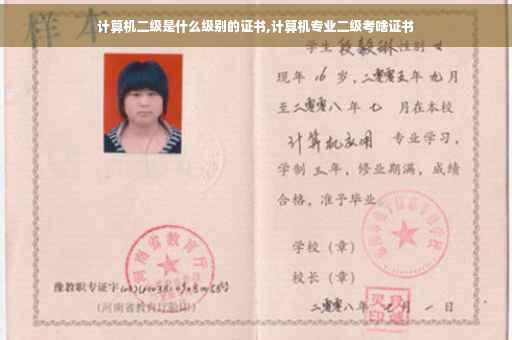 样本
计算机二级是什么级别的证书,计算机专业二级考啥证书
学生 段毅琳 性别 女
现年 16 岁,二零零五年 九 月
至二零零八 年 七 月在本校
计算机应用 专业学习,
学制 三 年,修业期满,成绩
合格,准予毕业
学校(章)
校长(章)
二零零八年 七 月 一 日
河南省教育厅
豫教职专证字
(河南省教育厅验印)